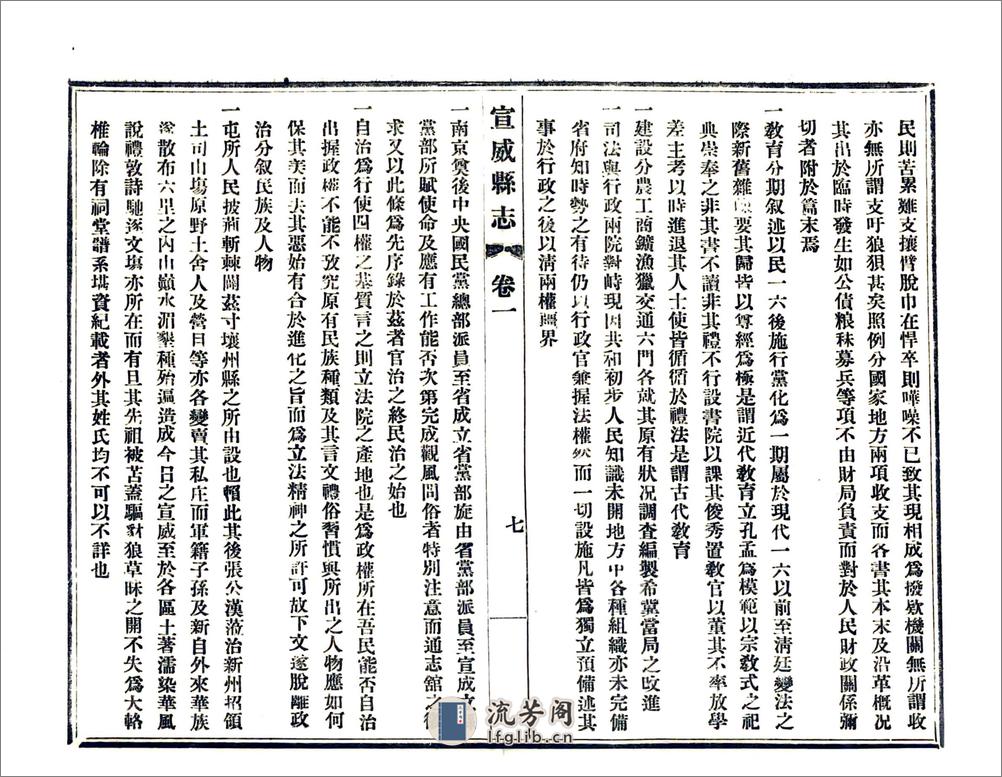 民則苦累難支攘臂脫巾在悍卒則嘩噪不已致其現相成爲撥欵機關無所謂收
亦無所謂支吁狼狽甚矣照例分國家地方兩項收支而各書其本末及沿革概况
其出於臨時發生如公債粮秣募兵等項不由財局負責而對於人民財政關係彌
切者附於篇末焉
一教育分期叙述以民一六後施行黨化爲一期屬於現代一六以前至淸廷變法之
際新舊雜糅要其歸皆以尊經爲極是謂近代敎育立孔孟爲模範以宗敎式之祀
典崇奉之非其書不讀非其禮不行設書院以課其俊秀置敎官以董其不率放學
差主考以時進退其人士使皆循循於禮法是謂古代敎育
一建設分農工商鑛漁獵交通六門各就其原有狀况調查編製希黨當局之改進
一司法與行政兩院對峙現因共和初步人民知識未開地方中各種組織亦未完備
省府知時勢之有待仍以行政官兼握法權然而一切設施凡皆爲獨立預備述其
事於行政之後以淸兩權疆界
宣威縣志 卷一 七
一南京奠後中央國民黨總部派員至省成立省黨部旋由省黨部派員至宣成立
黨部所賦使命及應有工作能否次第完成觀風問俗者特別注意而通志舘之徵
求又以此條爲先序錄於茲者官治之終民治之始也
一自治爲行使四權之基質言之則立法院之產地也是爲政權所在吾民能否自治
出握政權不能不攷究原有民族種類及其言文禮俗習慣與所出之人物應如何
保其美而去其惡始有合於進化之旨而爲立法精神之所許可故下文遂脫離政
治分叙民族及人物
一屯所人民披荊斬棘闢茲寸壤州縣之所由設也賴此其後張公漢蒞治新州招領
土司山塲原野土舍人及營目等亦各變賣其私庄而軍籍子孫及新自外來華族
遂散布六里之內山巔水湄墾種殆遍造成今日之宣威至於各區土著濡染華風
說禮敦詩馳逐文塲亦所在而有且其先祖被苫蓋驅豺狼草昧之開不失爲大輅
椎輪除有祠堂譜系堪資紀載者外其姓氏均不可以不詳也
流芳阁
lfglib.cn